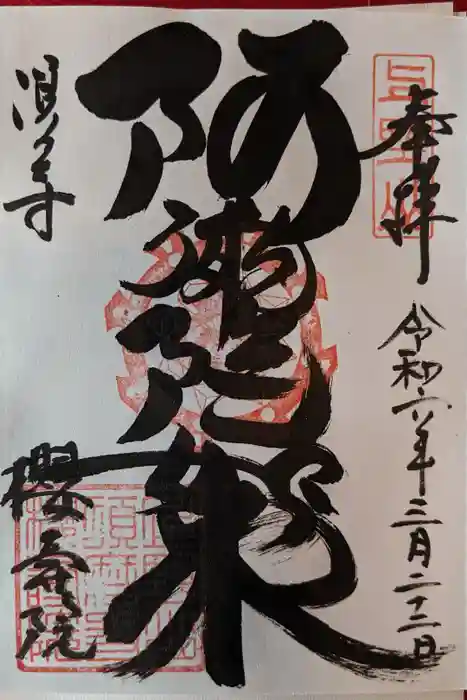 上野山
奉拝
令和六年三月二十二日
阿彌陀如来
須磨寺
櫻壽院